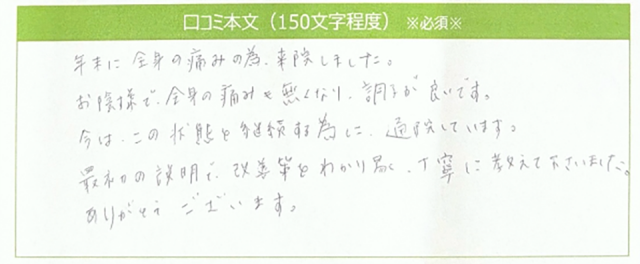 口コミ本文（150文字程度）※必須※
年末に全身の痛みの為、来院しました。
お陰様で、全身の痛みも無くなり、調子が良いです。
今は、この状態を継続する為に、通院しています。
最初の説明で、改善策をわかり易く、丁寧に教えて下さいました。
ありがとうございます。